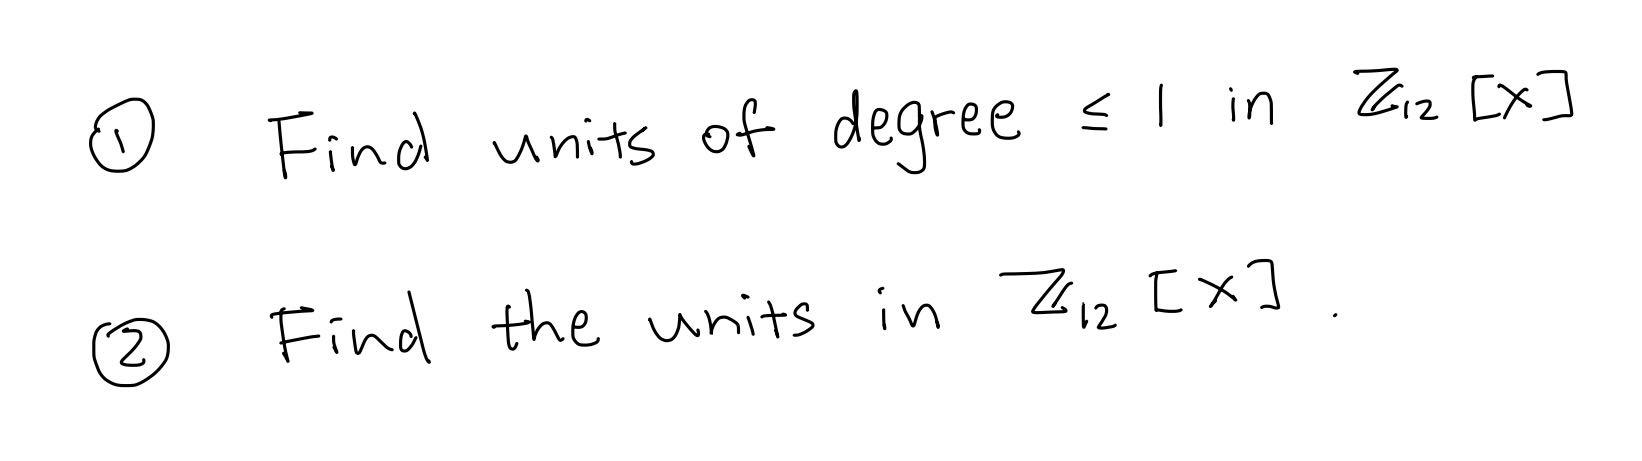 ① Find units of degree ≤ 1 in ℤ₁₂ [x]
② Find the units in ℤ₁₂ [x] .